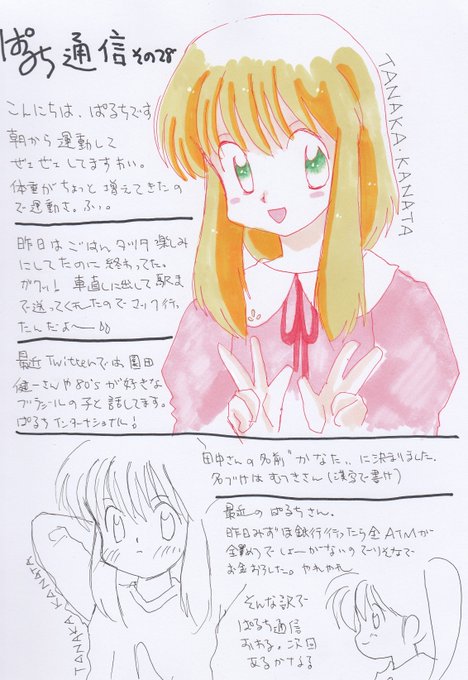 ぱるち通信 その28
TANAKA KANATA
こんにちは、ぱるちです
朝から運動して
ゼェゼェしてますわい。
体重がちょっと増えてきたの
で運動さ。ふぃ。
昨日はごはんタツタ楽しみ
にしてたのに終わってた。
ガクッ! 車直しに出して駅ま
で送ってくれたのでマック行っ
たんだよ〜
最近Twitterでは園田
健一さんや80'sが好きな
ブラジールの子と話してます。
ぱるちインターナショナル!
田中さんの名前"かなた"に決まりました。
名づけはむつきさん(漢字で書け)
最近のぱるちさん。
昨日みずほ銀行行ったら全ATMが
全滅でしょーがないのでりそなで
お金おろした。やれやれ
そんな訳で
ぱるち通信
おわる。次回
あるかなる
TANAKA KANATA